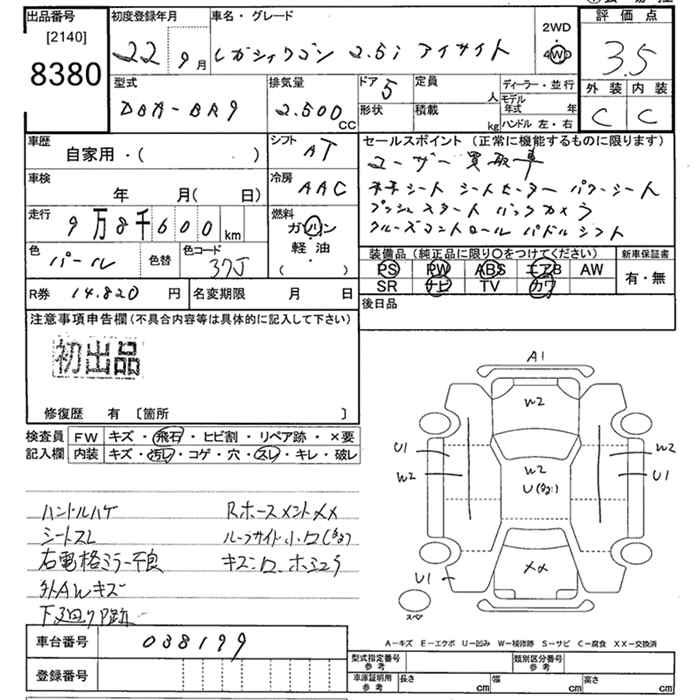 出品番号
[2140]
8380
初度登録年月
22 9月
車名・グレード
レガシィワゴン 2.5i アイサイト
2WD
4WD
評価点
3.5
外装 内装
C C
型式
DBA-BR9
排気量
2.500
CC
ドア 5
形状
定員
人
積載
kg
ディーラー・並行
モデル年式 年
ハンドル 左・右
車歴
自家用・( )
シフト
AT
車検
年 月( 日)
冷房
AAC
走行
9万8千600 km
燃料
ガソリン
軽・油
( )
色
パール
色替
色コード
37J
R券 14.820 円
名変期限 月 日
セールスポイント (正常に機能するものに限ります)
ユーザー買取車
本木シート シートヒーター パワーシート
プッシュスタート バックカメラ
クルーズコントロール パドルシフト
装備品(純正品に限り○をつけてください)
PS PW ABS エアB AW
SR ナビ TV カワ
新車保証書
有・無
後日品
注意事項申告欄(不具合内容等は具体的に記入して下さい)
初出品
修復歴 有 〔箇所 〕
検査員
記入欄
FW キズ・飛石・ヒビ割・リペア跡・×要
内装 キズ・汚レ・コゲ・穴・スレ・キレ・破レ
ハンドルハゲ
シートスレ
右電格ミラー不良
外AWキズ
下廻りP跡
Rホースメントメメ
ルーフサイド小凹(有)
キズ凹
A1
W2
W2
U(有)
XX
U1
W2
W2
U1
U1
スペア
A−キズ E−エクボ U−凹み W−補修跡 S−サビ C−腐食 XX−交換済
車台番号
038199
登録番号
型式指定番号
参考
類別区分番号
参考
車庫証明用
参考
長さ cm
幅 cm
高さ cm